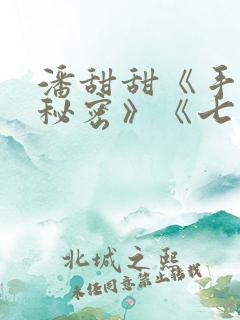 潘甜甜《手
秘密》《七
北城之熙
未经同意禁止转载